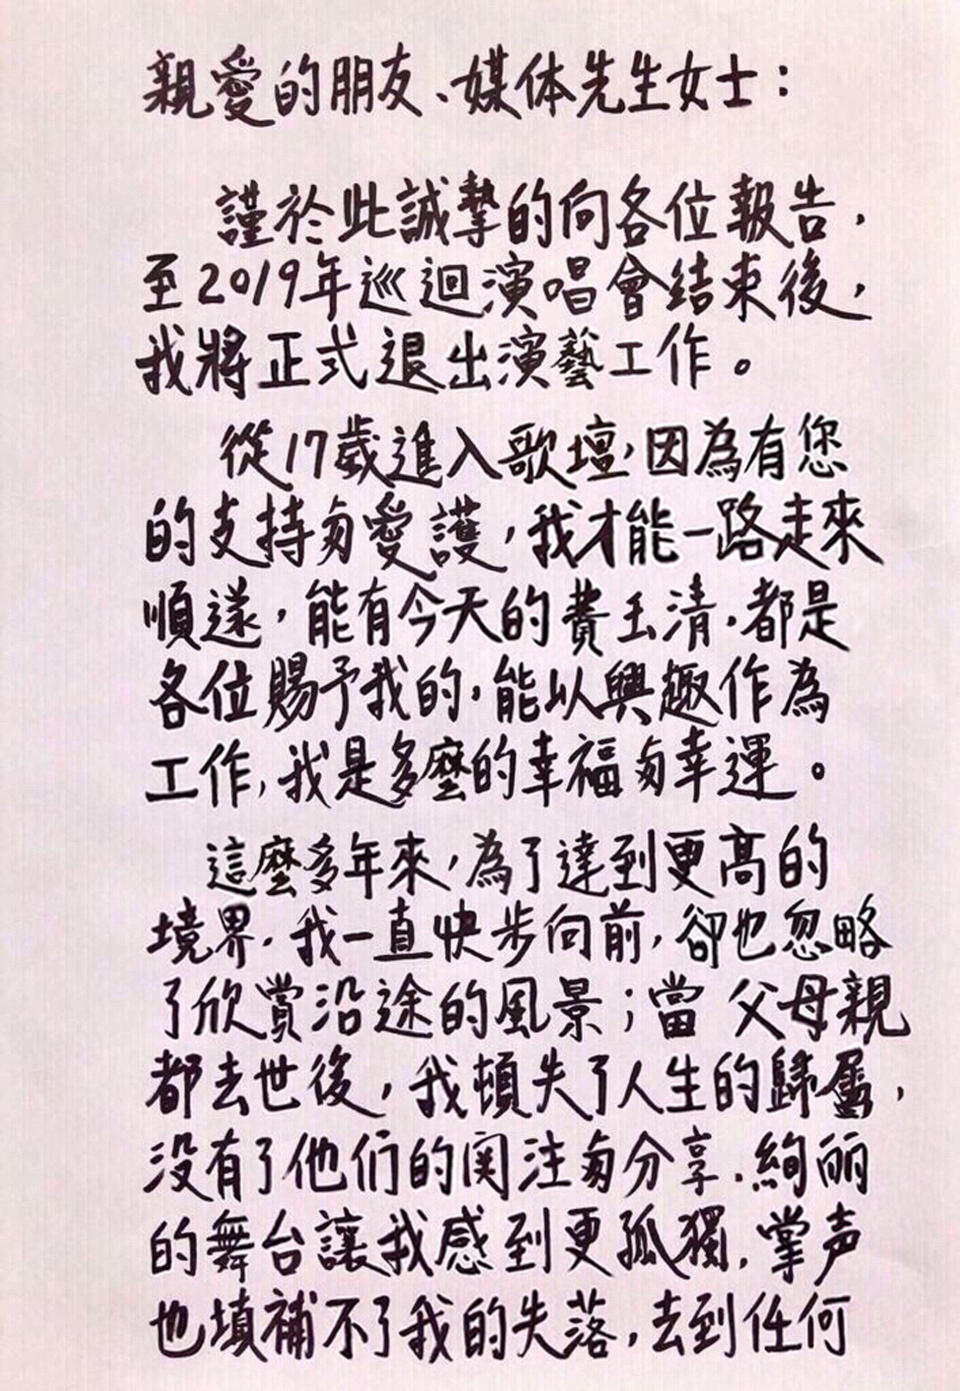 親愛的朋友、媒体先生女士：
謹於此誠摯的向各位報告，
至2019年巡迴演唱會结束後，
我將正式退出演藝工作。
從17歲進入歌壇，因為有您
的支持與愛護，我才能一路走來
順遂，能有今天的費玉清，都是
各位賜予我的，能以興趣作為
工作，我是多麼的幸福與幸運。
這麼多年來，為了達到更高的
境界，我一直快步向前，卻也忽略
了欣賞沿途的風景；當父母親
都去世後，我頓失了人生的歸屬，
没有了他们的関注與分享，絢丽
的舞台讓我感到更孤獨，掌声
也填補不了我的失落，去到任何